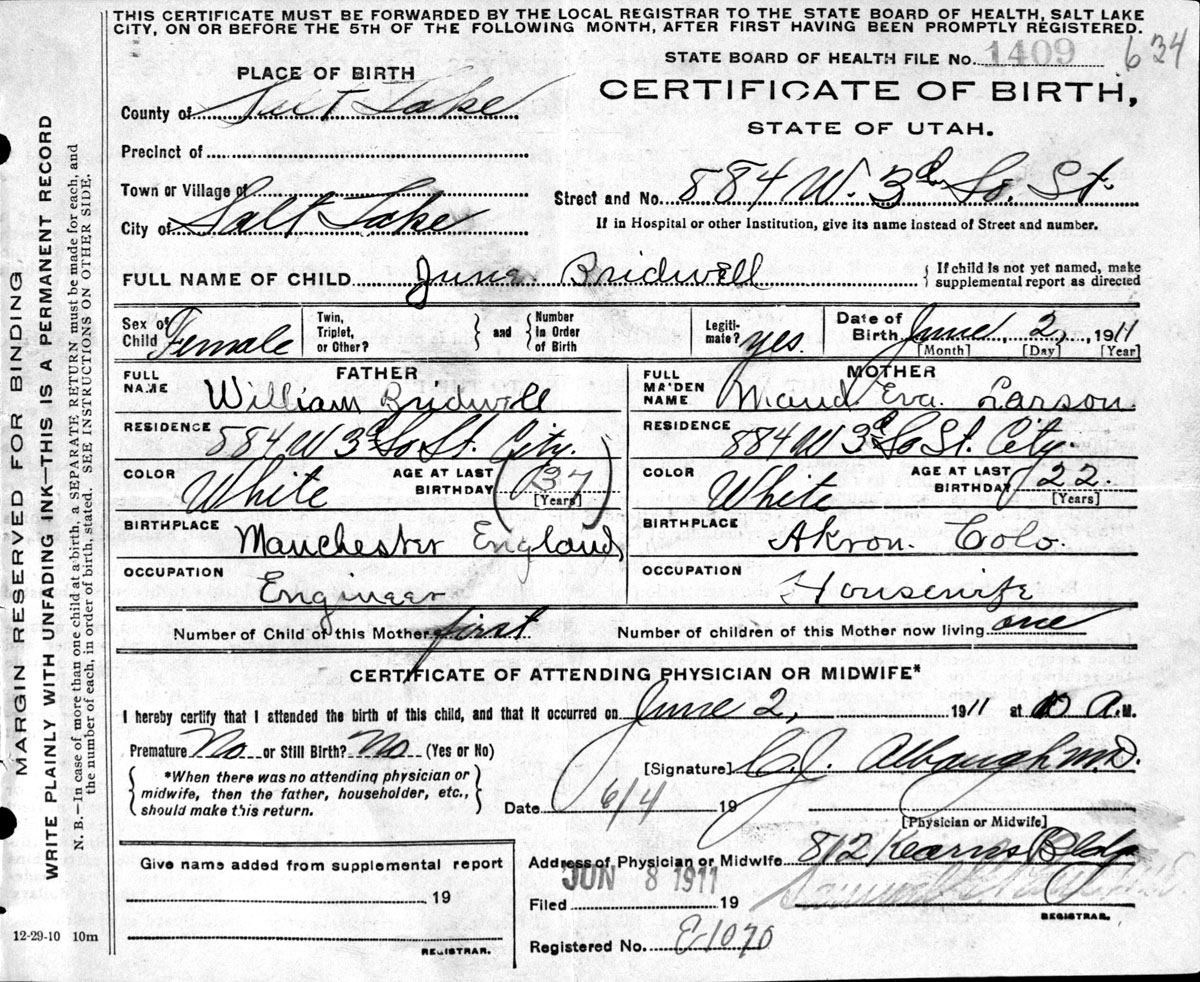 THIS CERTIFICATE MUST BE FORWARDED BY THE LOCAL REGISTRAR TO THE STATE BOARD OF HEALTH, SALT LAKE
CITY, ON OR BEFORE THE 5TH OF THE FOLLOWING MONTH, AFTER FIRST HAVING BEEN PROMPTLY REGISTERED.
STATE BOARD OF HEALTH FILE No. 1409 634
PLACE OF BIRTH
CERTIFICATE OF BIRTH,
County of Salt Lake
STATE OF UTAH.
Precinct of
Town or Village of
Street and No. 884 W. 3d So. St.
City of Salt Lake
If in Hospital or other Institution, give its name instead of Street and number.
FULL NAME OF CHILD June Bridwell { If child is not yet named, make
supplemental report as directed
Sex of Child Female Twin, Triplet, or Other? } and { Number in Order of Birth Legiti-mate? yes. Date of Birth June 2, 1911
[Month] [Day] [Year]
FATHER MOTHER
FULL NAME William Bridwell FULL MAIDEN NAME Maud Eva. Larson.
RESIDENCE 884 W 3d So St. City. RESIDENCE 884 W 3d So St. City.
COLOR White AGE AT LAST BIRTHDAY (37) [Years] COLOR White AGE AT LAST BIRTHDAY 22. [Years]
BIRTHPLACE Manchester England, BIRTHPLACE Akron. Colo.
OCCUPATION Engineer OCCUPATION Housewife
Number of Child of this Mother first. Number of children of this Mother now living one
CERTIFICATE OF ATTENDING PHYSICIAN OR MIDWIFE*
I hereby certify that I attended the birth of this child, and that it occurred on June 2, 1911 at 10 A.M.
Premature No or Still Birth? No (Yes or No)
[Signature] C.J. Albaugh M.D.
{ *When there was no attending physician or
midwife, then the father, householder, etc.,
should make this return. }
Date 6/4 19
[Physician or Midwife]
Address of Physician or Midwife 812 Kearns Bldg
Give name added from supplemental report
JUN 8 1911
19
Filed 19
REGISTRAR.
Registered No. E1070
REGISTRAR.
12-29-10 10m
MARGIN RESERVED FOR BINDING
WRITE PLAINLY WITH UNFADING INK—THIS IS A PERMANENT RECORD
N. B.—In case of more than one child at a birth, a SEPARATE RETURN must be made for each, and
the number of each, in order of birth, stated. SEE INSTRUCTIONS ON OTHER SIDE.